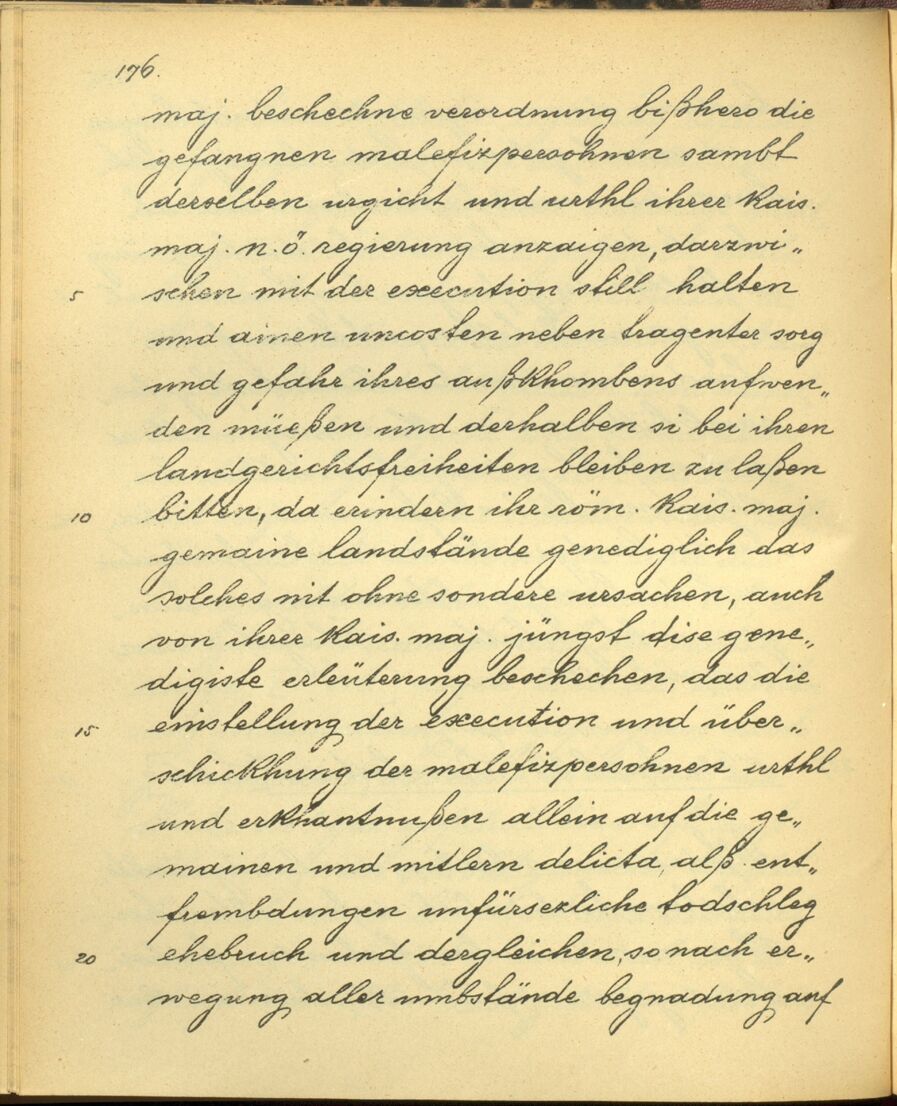 176.
maj. beschechne verordnung bißhero die
gefangnen malefizpersohnen sambt
derselben urgicht und urthl ihrer Kais.
maj. n. ö. regierung anzaigen, darzwi„
5 schen mit der execution still halten
und ainen uncosten neben tragenter sorg
und gefahr ihres außkhombens aufwen„
den müeßen und derhalben si bei ihren
landgerichtsfreiheiten bleiben zu laßen
10 bitten, da erindern ihr röm. Kais. maj.
gemaine landstände genediglich das
solches nit ohne sondere ursachen, auch
von ihrer Kais. maj. jüngst dise gene„
digiste erleüterung beschechen, das die
15 einstellung der execution und über„
schickhung der malefizpersohnen urthl
und erkhantnußen allein auf die ge„
mainen und mitlern delicta, alß ent„
frembdungen unfürsezliche todschleg
20 ehebruch und dergleichen, so nach er„
wegung aller umbstände begnadung auf